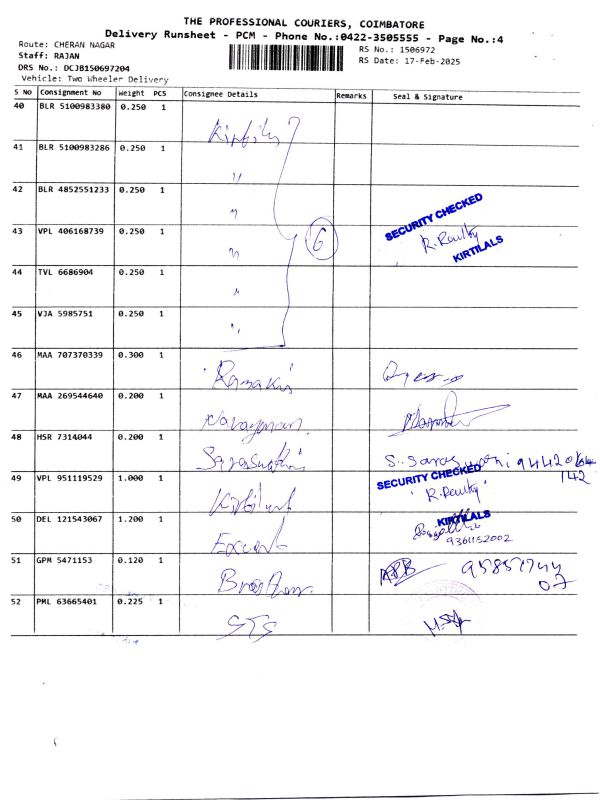 THE PROFESSIONAL COURIERS, COIMBATORE
Delivery Runsheet - PCM - Phone No.:0422-3505555 - Page No.:4
Route: CHERAN NAGAR
RS No.: 1506972
Staff: RAJAN
RS Date: 17-Feb-2025
DRS No.: DCJB150697204
Vehicle: Two Wheeler Delivery
S NO Consignment No Weight PCS Consignee Details Remarks Seal & Signature
40 BLR 5100983380 0.250 1
41 BLR 5100983286 0.250 1 "
42 BLR 4852551233 0.250 1 "
SECURITY CHECKED
43 VPL 406168739 0.250 1 " 6
KIRTILALS
44 TVL 6686904 0.250 1 "
45 VJA 5985751 0.250 1 "
46 MAA 707370339 0.300 1
47 MAA 269544640 0.200 1 Narayanan
48 HSR 7314044 0.200 1 Saraswathi
SECURITY CHECKED
142
49 VPL 951119529 1.000 1
KIRTILALS
50 DEL 121543067 1.200 1
9361152002
51 GPM 5471153 0.120 1
07
52 PML 63665401 0.225 1 STS